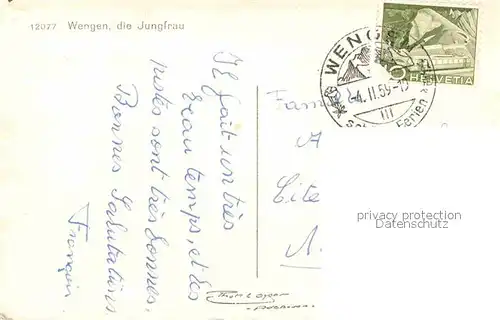 12077 Wengen, die Jungfrau
Il fait un très
beau temps, et des
pistes sont très bonnes,
Bonnes Salutations
François
WENGEN
-4.II.59-1
III
Ferien
HELVETIA
Fam
A
Cite
A.
privacy protection
Datenschutz